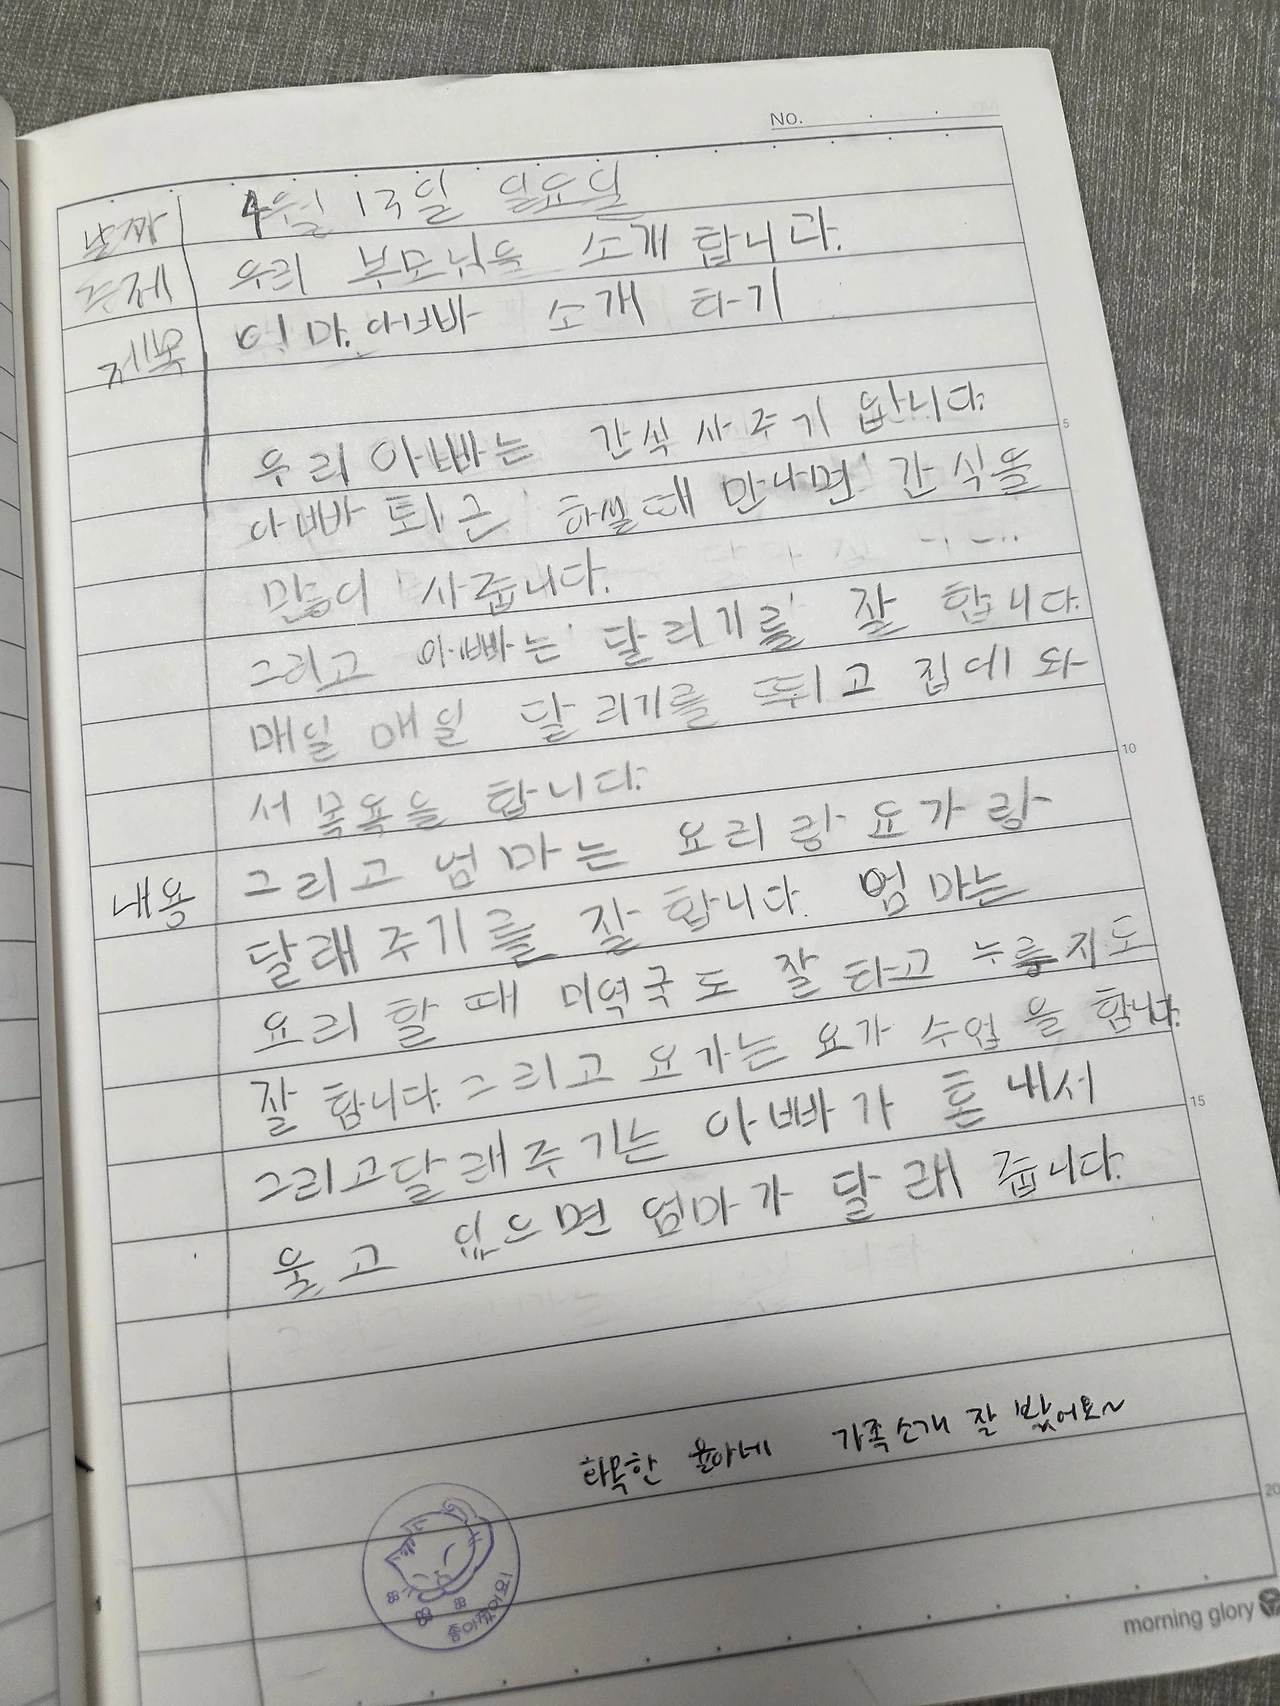 No.
날짜 4월 13일 일요일
주제 우리 부모님을 소개합니다.
제목 엄마.아빠 소개 하기
우리 아빠는 간식 사주기 왑니다.
아빠 퇴근 하씰때 만나면 간식을
많이 사줍니다.
그리고 아빠는 달리기를 잘 합니다.
매일 매일 달리기를 뛰고 집에 와
서 목욕을 합니다.
그리고 엄마는 요리랑 요가랑
내용 달래주기를 잘 합니다. 엄마는
요리 할 때 미역국도 잘 하고 누룽지도
잘 합니다. 그리고 요가는 요가 수업을 합니다.
그리고 달래주기는 아빠가 혼내서
울고 있으면 엄마가 달래 줍니다.
화목한 율아네 가족소개 잘 봤어요~
5
10
15
20
morning glory